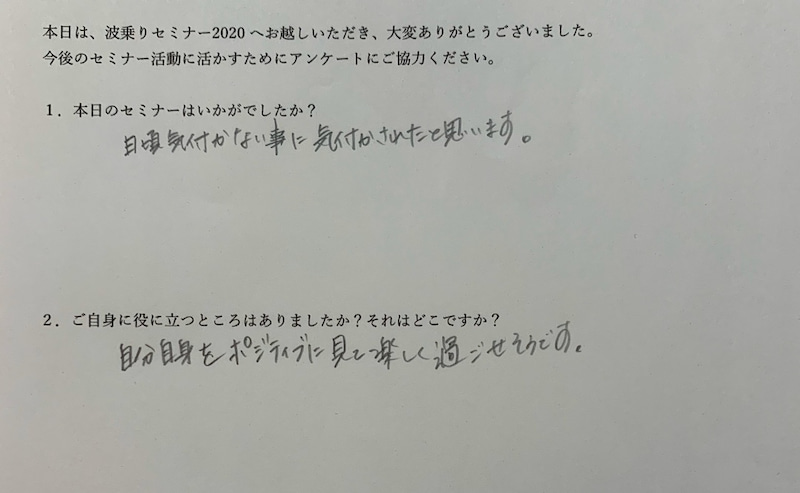 本日は、波乗りセミナー2020へお越しいただき、大変ありがとうございました。
今後のセミナー活動に活かすためにアンケートにご協力ください。
1．本日のセミナーはいかがでしたか？
日頃気付かない事に気付かされたと思います。
2．ご自身に役に立つところはありましたか？それはどこですか？
自分自身をポジティブに見て楽しく過ごせそうです。